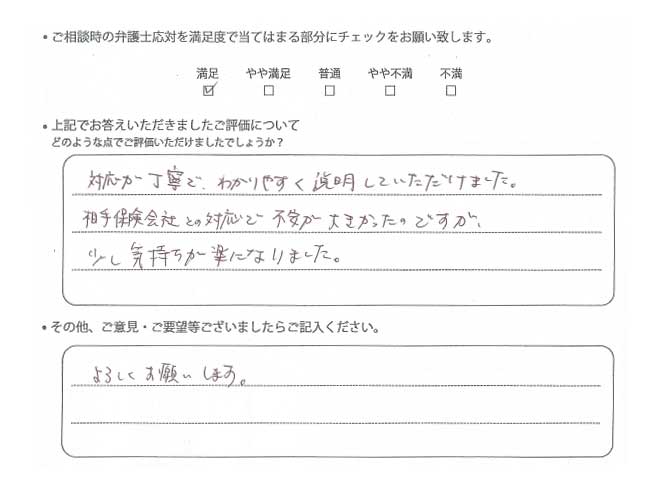 ・ご相談時の弁護士応対を満足度で当てはまる部分にチェックをお願い致します。
満足 やや満足 普通 やや不満 不満
☑ □ □ □ □
・上記でお答えいただきましたご評価について
どのような点でご評価いただけましたでしょうか？
対応が丁寧で、わかりやすく説明していただけました。
相手保険会社との対応で不安が大きかったのですが、
少し気持ちが楽になりました。
・その他、ご意見・ご要望等ございましたらご記入ください。
よろしくお願いします。